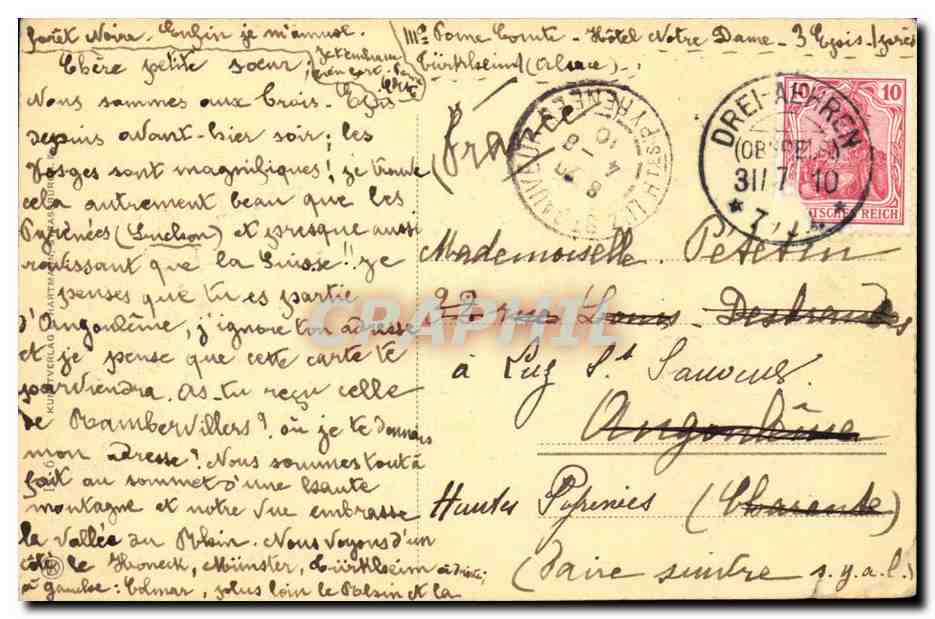 forêt Noire. Enfin je m'amuse.
Mlle Porne Comte - Hôtel Notre Dame - 3 Epis - /près
Türkheim/(Alsace)
Chère petite sœur.
Je t'embrasse
Nous sommes aux Trois-Epis
depuis avant-hier soir; les
Vosges sont magnifiques! je trouve
cela autrement beau que les
Pyrénées (Luchon) et presque aussi
ravissant que la Suisse!! Je
penses que tu es partie
d'Angoulême, j'ignore ton adresse
et je pense que cette carte te
parviendra. As-tu reçu celle
de Rambervillers? où je te donnais
mon adresse? Nous sommes tout à
fait au sommet d'une haute
montagne et notre vue embrasse
la vallée du Rhin. Nous voyons d'un
côté le Honeck, Münster, Türkheim à droite;
à gauche: Colmar, plus loin le Rhin et la
France
LUZ-ST-SAUVEUR
HTES PYRENEES
8 20
4 - 8
10
DREI-AEHREN
(OBERELS.)
31/7 10
* 7 *
10 10
DEUTSCHES REICH
Mademoiselle Petetin
22 rue Louis Desbrandes
à Luz St Sauveur
Angoulême
Hautes Pyrénées (Charente)
(Faire suivre s.v.p.l.)
KUNSTVERLAG HARTMANN STRASSBURG
CARAPHIL